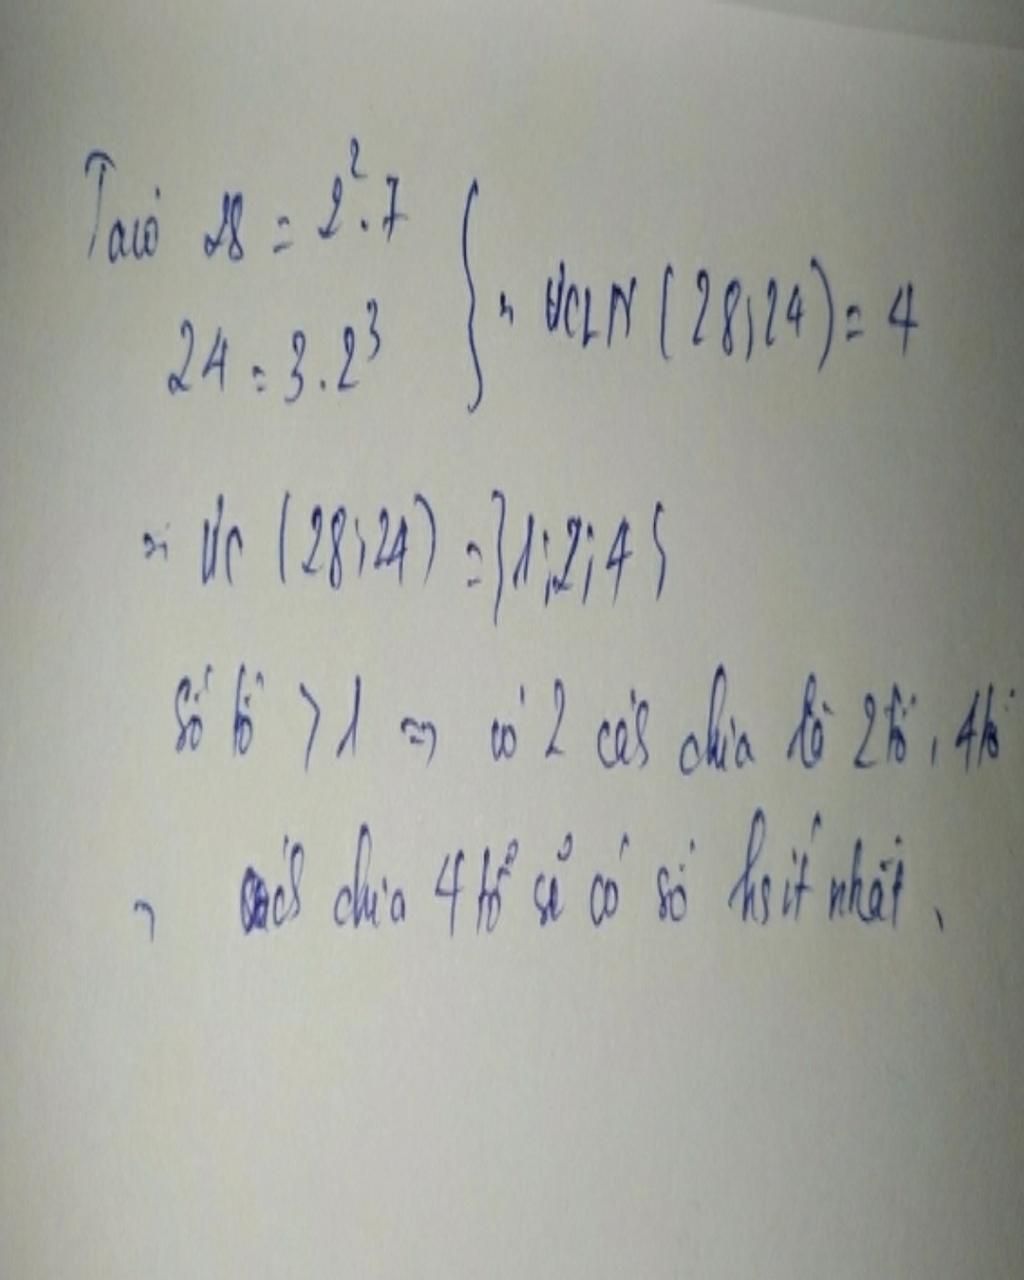 Ta có 28 = 2².7
24 = 3.2³ } => ƯCLN (28;24) = 4
=> ƯC (28;24) = {1;2;4}
Số tổ > 1 => có 2 cách chia là 2 tổ, 4 tổ
=> cách chia 4 tổ sẽ có số hs ít nhất.